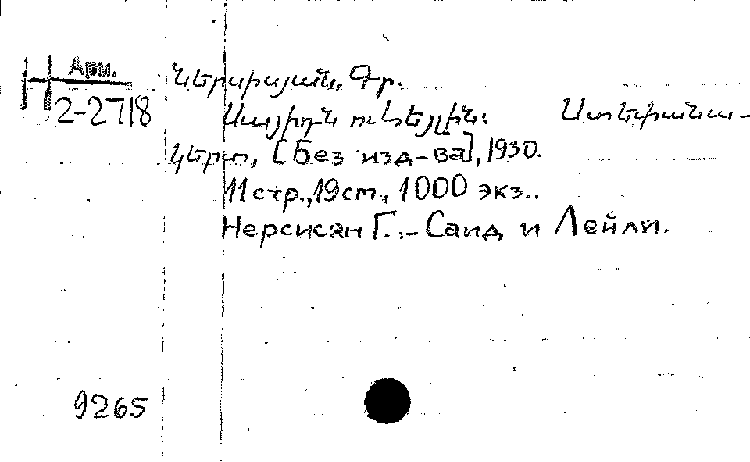 Арм.
Ներսիսյան, Գր.
2-2718
Սայիդն ու Լեյլին: Ստեփանա-
կերտ, [Без изд-ва], 1930.
11 стр., 19 см., 1000 экз..
Нерсисян Г. - Саид и Лейли.
9265